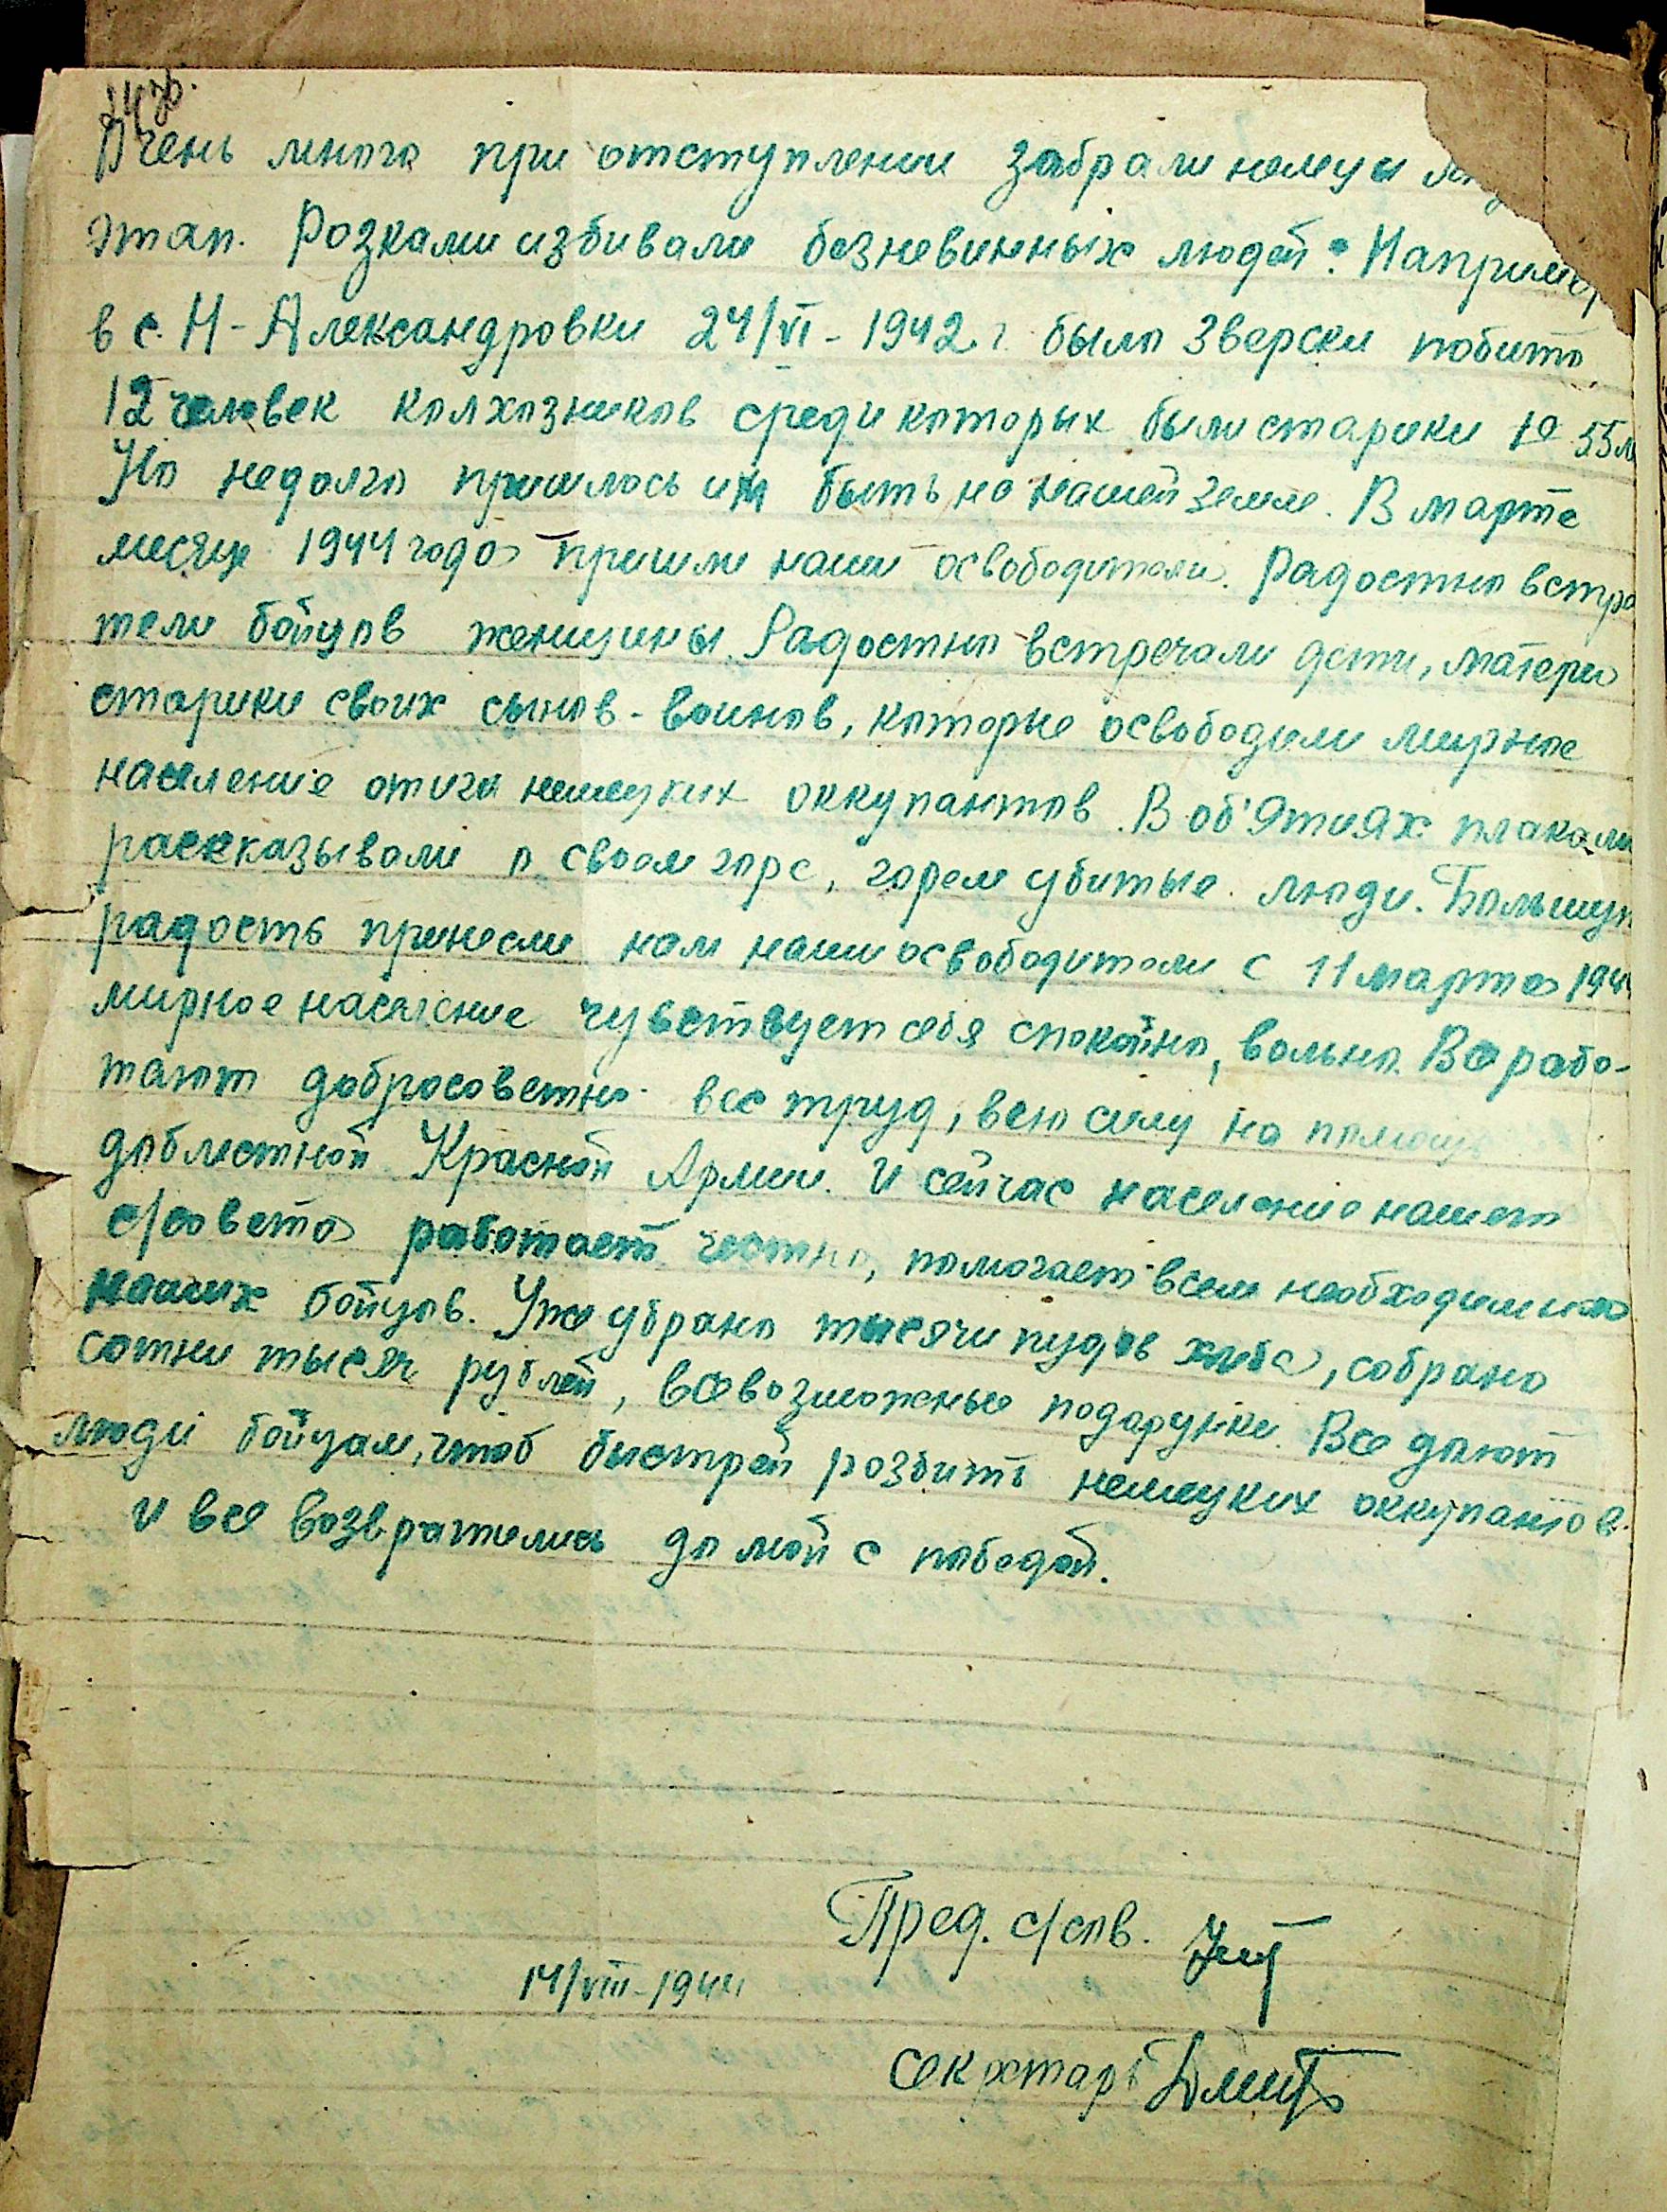 Очень много при отступлении забрали немцы
этап. Розками избивали безневинных людей: Например
в с. Н-Александровки 24/VI-1942 г. было зверски побито
12 человек колхозников среди которых были старики
Но недолго пришлось им быть на нашей земле. В марте
месяце 1944 года пришли наши освободители. Радостно встре
тели бойцов женщины. Радостно встречали дети, матери
старики своих сынов-воинов, которые освободили мирное
население от ига немецких оккупантов. В об'ятиях плакали
рассказывали о своем горе, горем убитые люди. Большую
радость принесли нам наши освободители с 11 марта 1944
мирное население чувствует себя спокойно, вольно. Все рабо-
тают добросоветно все труд, всю силу на помощь
доблестной Красной Армии. И сейчас население нашего
с/совета работает честно, помогает всем необходимым
наших бойцов. Уже убрано тысячи пудов хлеба, собрано
сотни тысяч рублей, всевозможные подарунки. Все дают
люди бойцам, чтоб быстрей розбить немецких оккупантов
и все возвратились домой с победой.
Пред. с/сов.
14/VIII-1944
секретарь